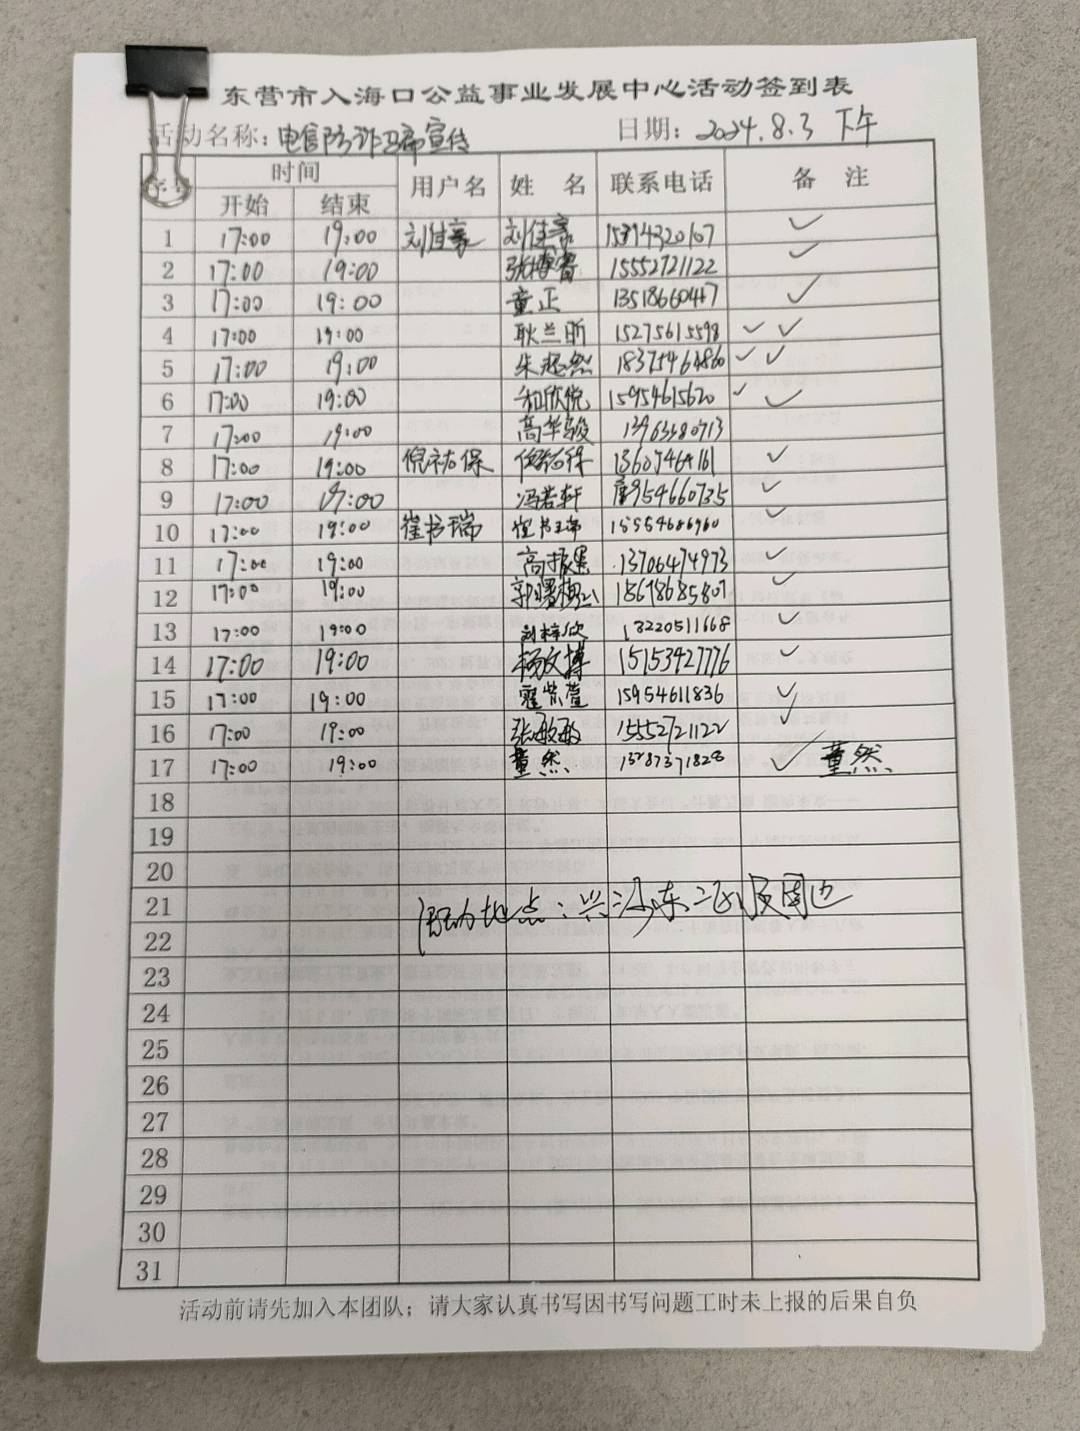 东营市入海口公益事业发展中心活动签到表
活动名称：电信防诈 宣传 日期：2024.8.3 下午
序 时间 用户名 姓 名 联系电话 备 注
开始 结束
1 17:00 19:00 刘佳豪 刘佳豪 ✓
2 17:00 19:00 张博睿 15552721122 ✓
3 17:00 19:00 童正 ✓
4 17:00 19:00 耿兰昕 15275615598 ✓ ✓
5 17:00 19:00 朱 然 ✓ ✓
6 17:00 19:00 和欣悦 15954615620 ✓ ✓
7 17:00 19:00 高华骏
8 17:00 19:00 倪祐保 ✓
9 17:00 19:00 冯若轩 ✓
10 17:00 19:00 崔书瑞 15554686960 ✓
11 17:00 19:00 高振 13706474973 ✓
12 17:00 19:00 郭曙 18678685807 ✓
13 17:00 19:00 刘梓欣 13220511668 ✓
14 17:00 19:00 杨文博 15153427776 ✓
15 17:00 19:00 霍紫萱 15954611836 ✓
16 17:00 19:00 张敏敏 15552721122 ✓
17 17:00 19:00 董然 13287371828 ✓ 董然
18
19
20
21 活动地点：兴 东二 及周边
22
23
24
25
26
27
28
29
30
31
活动前请先加入本团队；请大家认真书写因书写问题工时未上报的后果自负